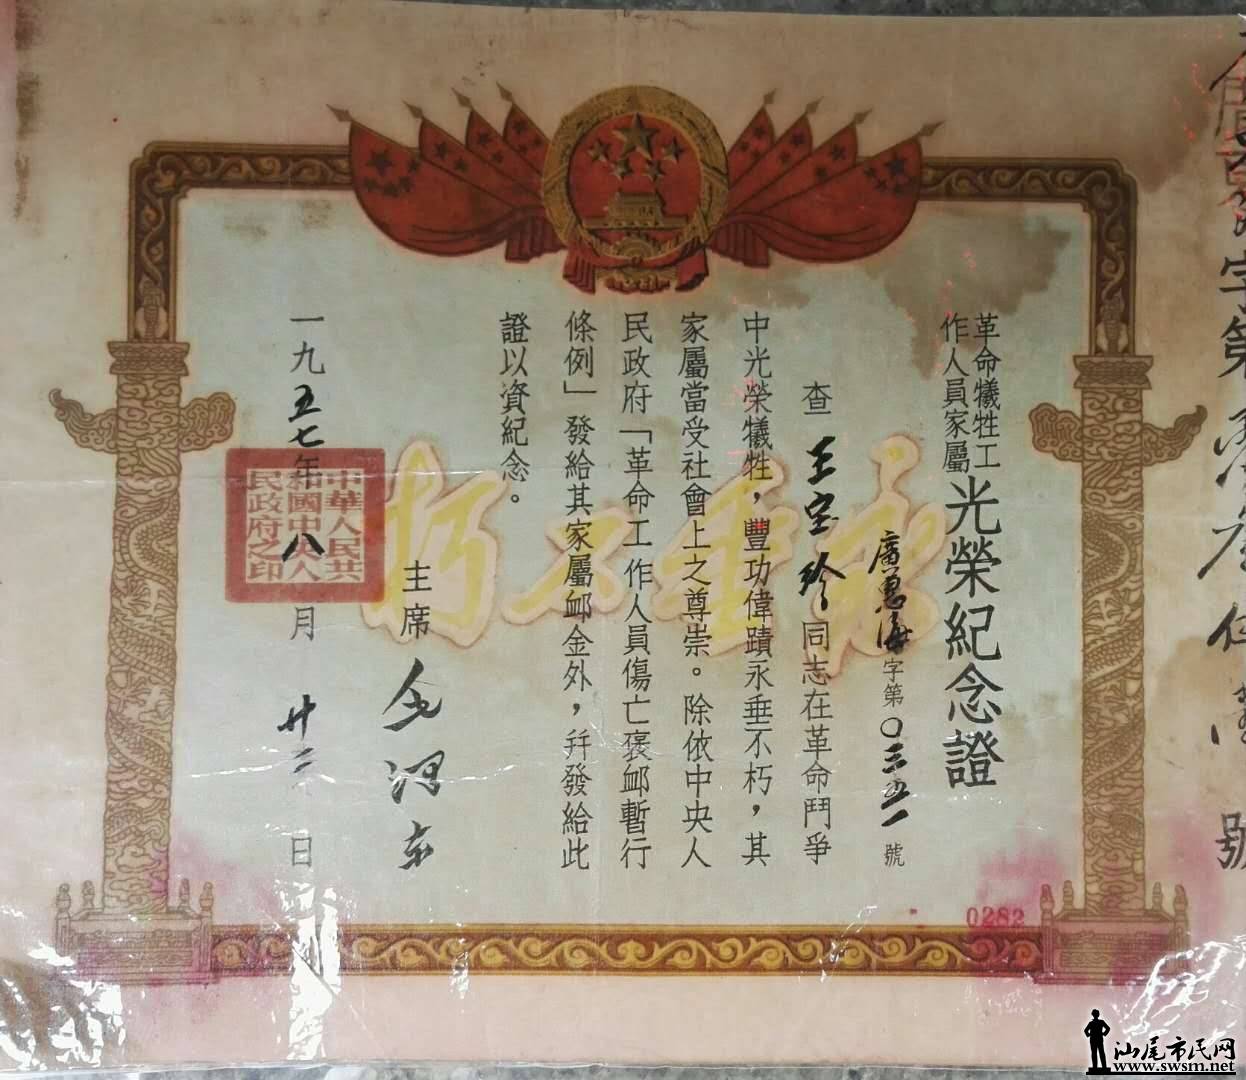 革命犧牲工
作人員家屬
光榮紀念證
廣惠海字第〇三五一號
查王宝珍同志在革命鬥爭
中光榮犧牲，豐功偉蹟永垂不朽，其
家屬當受社會上之尊崇。除依中央人
民政府「革命工作人員傷亡褒卹暫行
條例」發給其家屬卹金外，幷發給此
證以資紀念。
主席毛泽东
一九五七年八月廿二日
中華人民共
和國中央人
民政府之印
永垂不朽
0282
字第
號
汕尾市民网
www.swsm.net